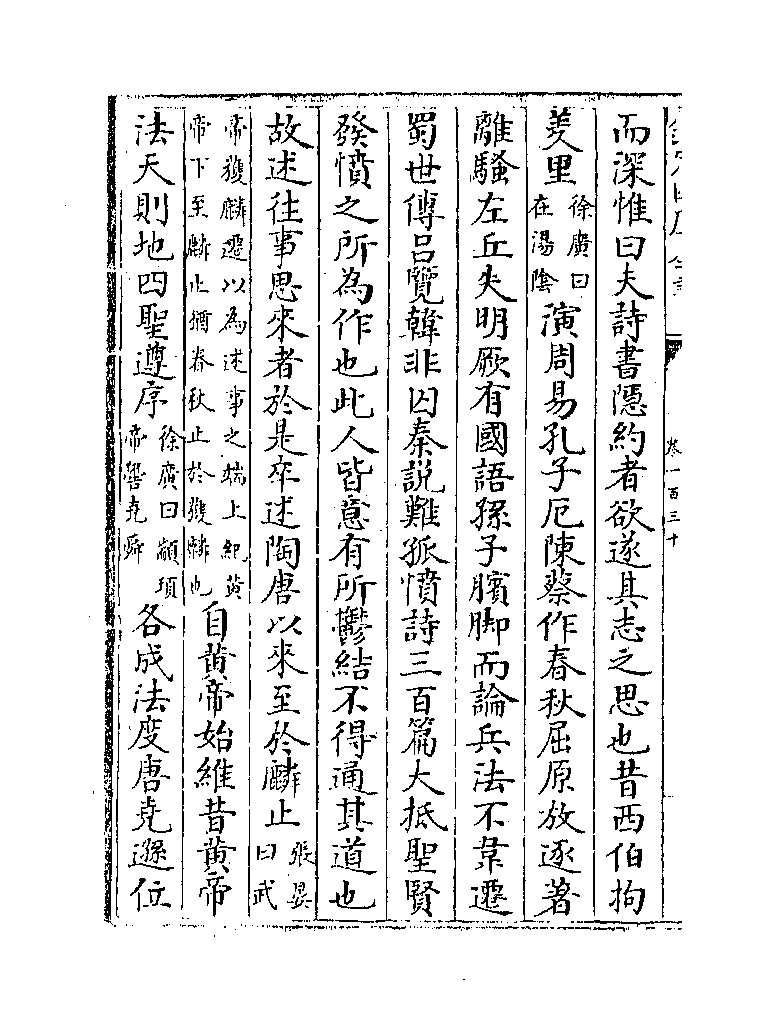 而深惟曰夫詩書隱約者欲遂其志之思也昔西伯拘
羑里徐廣曰在湯隂演周易孔子厄陳蔡作春秋屈原放逐著
離騷左丘失明厥有國語孫子臏脚而論兵法不韋遷
蜀世傳吕覽韓非囚秦説難孤憤詩三百篇大抵聖賢
發憤之所為作也此人皆意有所鬱結不得通其道也
故述往事思來者於是卒述陶唐以來至於麟止張晏曰武
帝獲麟遷以為述事之端上紀黄帝下至麟止猶春秋止於獲麟也自黄帝始維昔黄帝
法天則地四聖遵序徐廣曰顓頊帝嚳堯舜各成法度唐堯遜位
卷一百三十